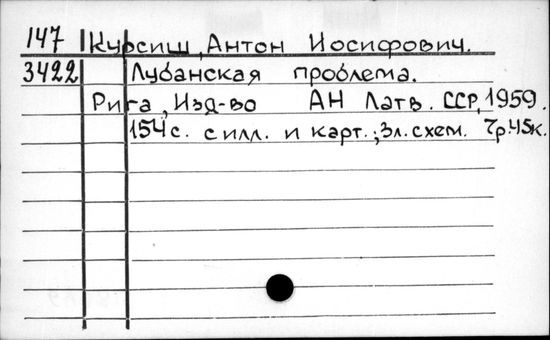 147 Курсиш, Антон Иосифович.
3422 Лубанская проблема.
Рига, Изд-во АН Латв. ССР, 1959.
154 с. с илл. и карт.; 3 л. схем. 7р.45к.